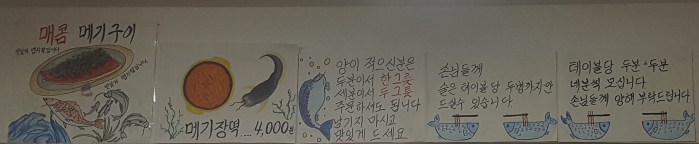 매콤 메기구이
메기장떡 .... 4,000원
양이 적으신분은
두분이서 한그릇
세분이서 두그릇
주문하셔도 됩니다
남기지 마시고
맛있게 드세요
손님들께
술은 테이블당 두병까지만
드실수 있습니다
테이블당 두분*두분
네분석 모십니다
손님들께 양해 부탁드립니다